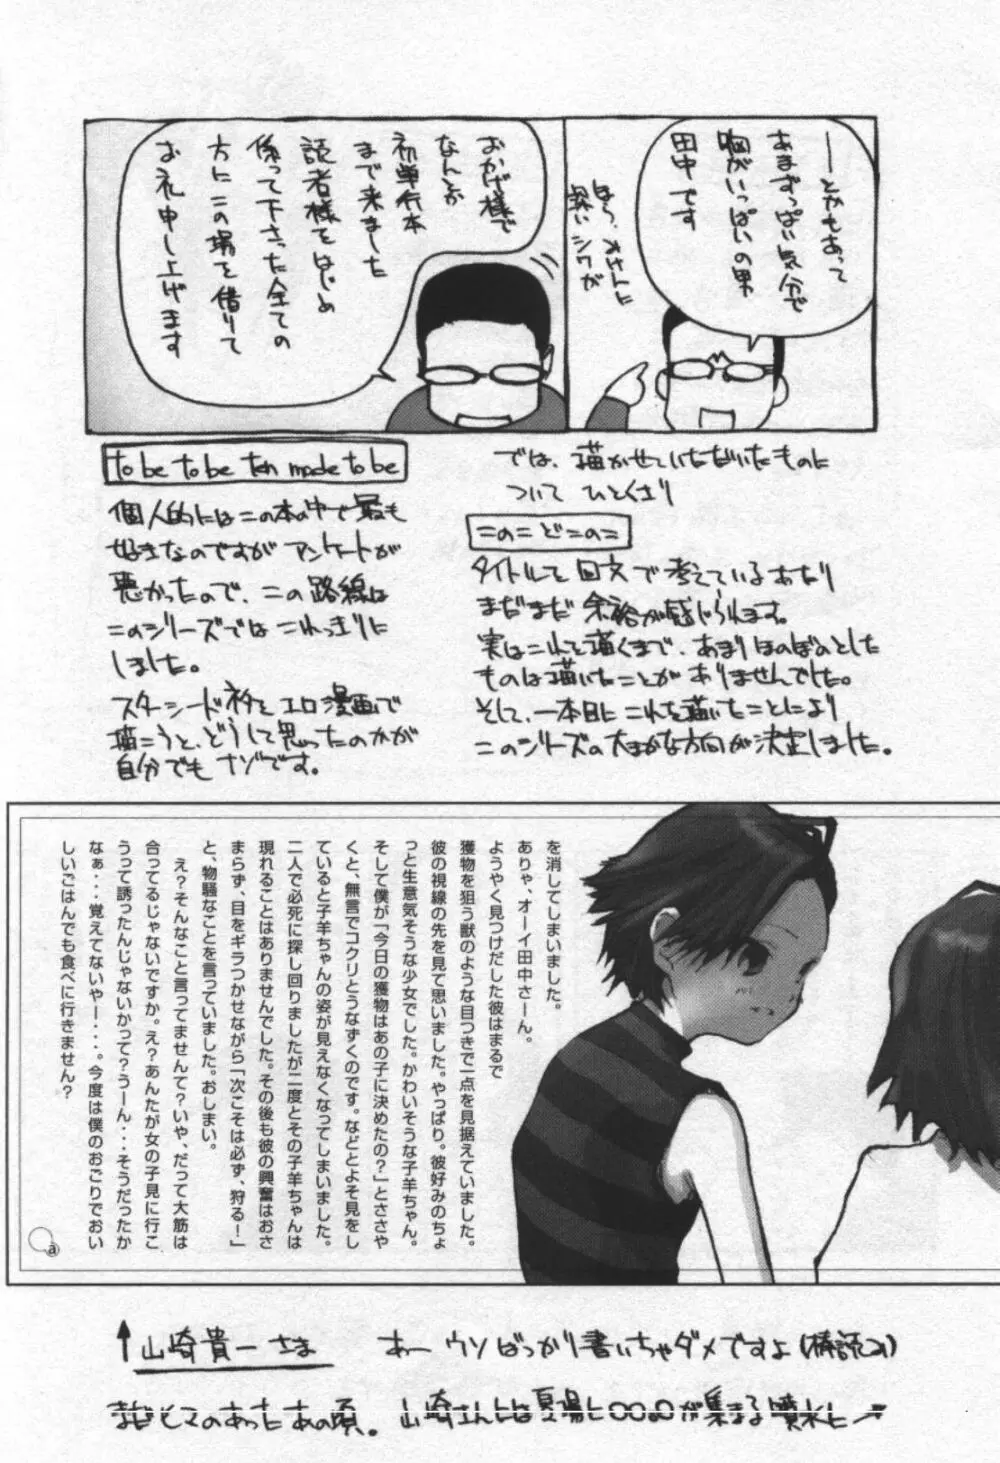 ――とかもあって
あまずっぱい気分で
胸がいっぱいの男
田中です
ほら、オトナに
深いシワが
おかげ様で
なんとか
初単行本
まで来ました
読者様をはじめ
係って下さった全ての
方にこの場を借りて
お礼申し上げます
では、描かせていただいたものに
ついて ひとくさり
このこ どこのこ
タイトルを回文で考えているあたり
まだまだ余裕が感じられます。
実はこれを描くまで、あまりほのぼのとした
ものは描いたことがありませんでした。
そして、一本目にこれを描いたことにより
このシリーズの大まかな方向が決定しました。
to be to be ten made to be
個人的にはこの本の中で最も
好きなのですがアンケートが
悪かったので、この路線は
このシリーズではこれっきりに
しました。
スターシードネタをエロ漫画で
描こうと、どうして思ったのかが
自分でもナゾです。
を消してしまいました。
ありゃ、オーイ田中さーん。
ようやく見つけだした彼はまるで
獲物を狙う獣のような目つきで一点を見据えていました。
彼の視線の先を見て思いました。やっぱり。彼好みのちょ
っと生意気そうな少女でした。かわいそうな子羊ちゃん。
そして僕が「今日の獲物はあの子に決めたの？」とささや
くと、無言でコクリとうなずくのです。などとよそ見をし
ていると子羊ちゃんの姿が見えなくなってしまいました。
二人で必死に探し回りましたが二度とその子羊ちゃんは
現れることはありませんでした。その後も彼の興奮はおさ
まらず、目をギラつかせながら「次こそは必ず、狩る！」
と、物騒なことを言っていました。おしまい。
え？そんなこと言ってませんて？いや、だって大筋は
合ってるじゃないですか。え？あんたが女の子見に行こ
うって誘ったんじゃないかって？うーん・・・そうだったか
なぁ・・・覚えてないやー・・・・。今度は僕のおごりでおい
しいごはんでも食べに行きません？
ⓐ
↑山崎貴一さま あー ウソばっかり書いちゃダメですよ
ヒマのあったあの頃。山崎さんとは夏場に〇〇〇が集まる噴水に